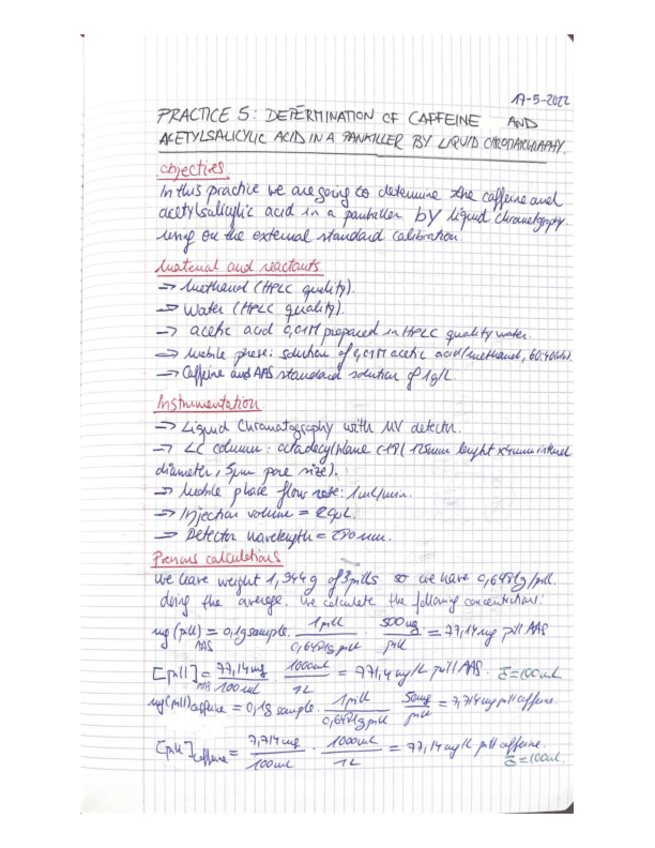 17-5-2022
PRACTICE 5: DETERMINATION OF CAFFEINE AND
ACETYLSALICYLIC ACID IN A PAINKILLER BY LIQUID CHROMATOGRAPHY.
objectives
In this practice we are going to determine the caffeine and
acetylsalicylic acid in a painkiller by liquid chromatography.
using on the external standard calibration.
Material and reactants
→ Methanol (HPLC quality).
→ Water (HPLC quality).
→ acetic acid 0,01M prepared in HPLC quality water.
→ Mobile phase: solution of 0,01M acetic acid/methanol, 60:40
→ Caffeine and AAS standard solution of 1g/L
Instrumentation
→ Liquid Chromatography with UV detector.
→ LC column: octadecylsilane C18 (125mm lenght x 4mm internal
diameter, 5μm pore size).
→ Mobile phase flow rate: 1mL/min.
→ Injection volume = 20μL.
→ Detector wavelength = 270 nm.
Previous calculations
We have weight 1,944g of 3 pills so we have 0,6481g/pill.
doing the average. We calculate the following concentrations:
mg (pill) AAS = 0,1g sample · 1 pill / 0,6481g pill · 500 mg / pill = 77,14 mg pill AAS
[pill] AAS = 77,14 mg / 100 mL · 1000 mL / 1L = 771,4 mg/L pill AAS. = 100mL
mg (pill) caffeine = 0,1g sample · 1 pill / 0,6481g pill · 50 mg / pill = 7,714 mg pill caffeine.
[pill] caffeine = 7,714 mg / 100 mL · 1000 mL / 1L = 77,14 mg/L pill caffeine. = 100mL.